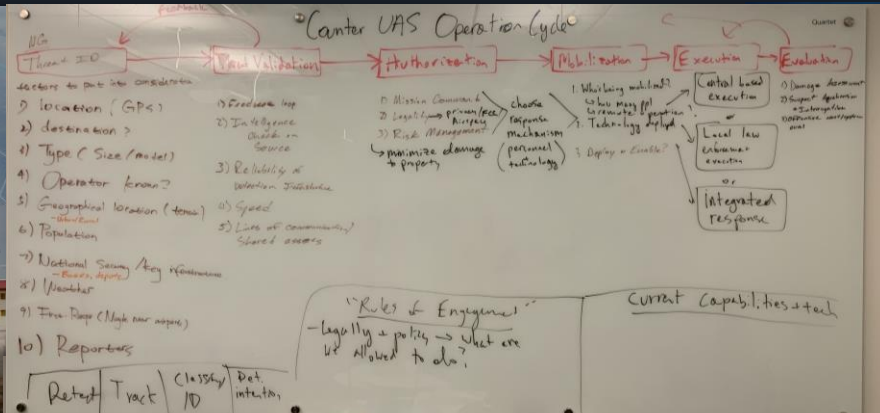 Feedback
Counter UAS Operation Cycle
Quartet
NG
Threat ID
Validation
Authorization
Mobilization
Execution
Evaluation
factors to put into
1) location (GPS)
2) destination?
3) Type (Size/model)
4) Operator known?
5) Geographical location
6) Population
7) National Security / key infrastructure
8) Weather
9) Range (Nigh near airport)
10) Reporters
1) Feedback loop
2) Intelligence
Check on
Source
3) Reliability of
detection
4) Speed
5) Lines of communication/
Shared assets
1) Mission Command
2) Legality
3) Risk Management
↳ minimize damage
to property
choose
response
mechanism
(personnel
technology)
1. What being mobilized?
↳ how many ppl
↳ remote operation?
2. Technology deployed
3. Deploy or Enable?
Control based
execution
or
Local law
enforcement
execution
or
integrated
response
1) Damage Assessment
2) Support
"Rules of Engagement"
- Legally + policy → what are
we allowed to do?
Current Capabilities + tech
Detect
Track
Classify/
ID
Det.
intention